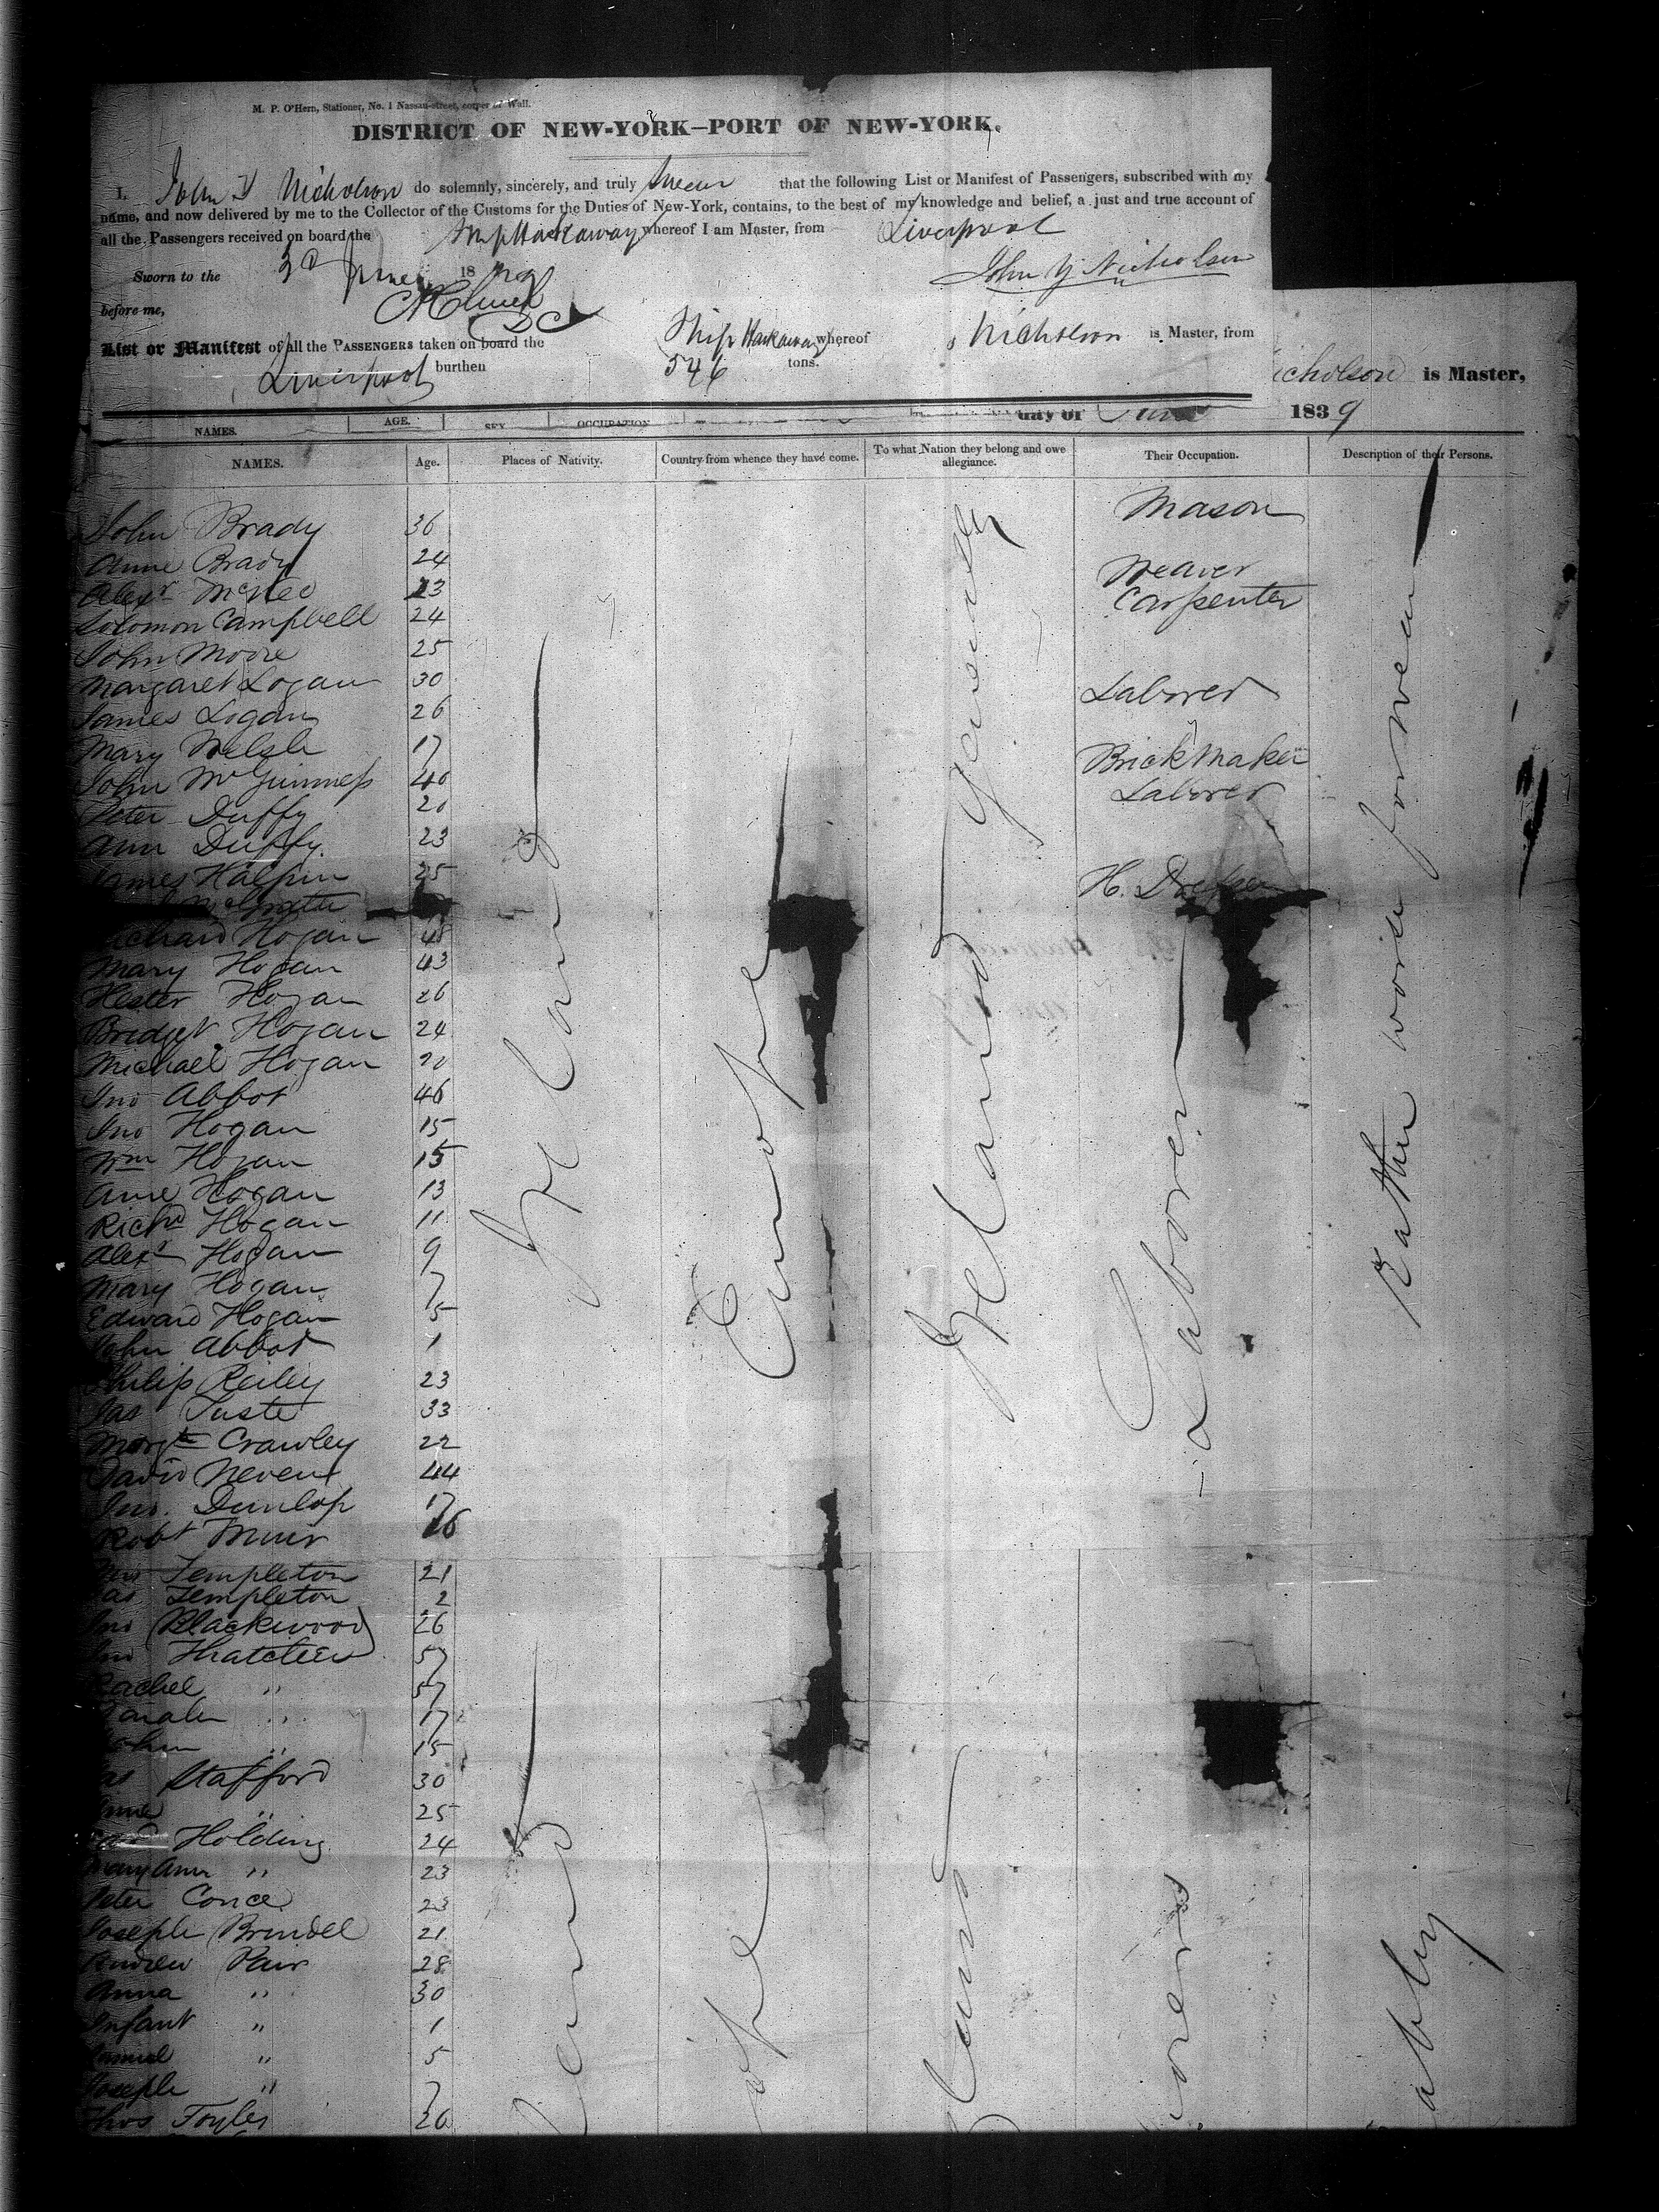 M. P. O'Hern, Stationer, No. 1 Nassau-street, corner of Wall.
DISTRICT OF NEW-YORK—PORT OF NEW-YORK.
I, John Y Nicholson do solemnly, sincerely, and truly Swear that the following List or Manifest of Passengers, subscribed with my
name, and now delivered by me to the Collector of the Customs for the Duties of New-York, contains, to the best of my knowledge and belief, a just and true account of
all the Passengers received on board the Ship Hackaway whereof I am Master, from Liverpool
Sworn to the 3d June 18 39
John Y Nicholson
before me,
List or Manifest of all the PASSENGERS taken on board the Ship Hackaway whereof Nicholson is Master, from
Liverpool burthen 546 tons.
icholson is Master,
day of June 1839
NAMES. AGE. SEX OCCUPATION
NAMES. Age. Places of Nativity. Country from whence they have come. To what Nation they belong and owe allegiance. Their Occupation. Description of their Persons.
John Brady 36 Mason
Anne Brady 24
Alexr McNeo 23 Weaver
Solomon Campbell 24 Carpenter
John Moore 25
Margaret Logan 30
James Logan 26 Laborer
Mary Welsh 17
John McGuinness 40 Brick Maker
Peter Duffy 20 Laborer
Ann Duffy 23
James Halpin 25 H. Dresser
McGrath
Richard Hogan 48
Mary Hogan 43
Hester Hogan 26
Bridget Hogan 24
Michael Hogan 20
Jno Abbot 46
Jno Hogan 15
Wm Hogan 15
Anne Hogan 13
Richd Hogan 11
Alexr Hogan 9
Mary Hogan 7
Edward Hogan 5
John Abbot 1
Philip Reiley 23
Jas Tuste 33
Margt Crawley 22
David Neven 44
Jno. Dunlop 17
Robt Muir 16
Templeton 21
Jas Templeton 2
Jno Blackwood 26
Jno Thatcher 57
Rachel " 57
Sarah " 17
John " 15
Jas Stafford 30
Anne " 25
Holding 24
Mary Ann " 23
Peter Conce 23
Joseph Brindel 21
Andrew Pair 28
Anna " 30
Infant " 1
Samuel " 5
Joseph " 7
Thos Foyles 20
Ireland
Europe
Ireland generally
Laborer
Rather worse for wear